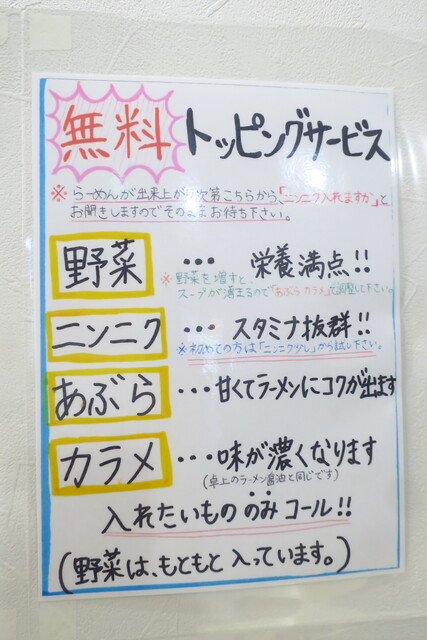 無料 トッピングサービス
※らーめんが出来上がり次第こちらから、「ニンニク入れますか」と
お聞きしますのでそのままお待ち下さい。
野菜 ・・・ 栄養満点!!
※野菜を増すと、
スープが薄まるので「あぶら カラメ」で調整して下さい。
ニンニク ・・・ スタミナ抜群!!
※初めての方は「ニンニク少し」から試し下さい。
あぶら ・・・ 甘くてラーメンにコクが出ます
カラメ ・・・ 味が濃くなります
(卓上のラーメン醤油と同じです)
入れたいもの のみ コール!!
(野菜は、もともと 入っています。)